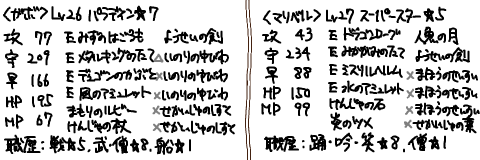 〈ガボ〉Lv.26 パラディン★7
攻 77 E みずのはごろも ようせいの剣
守 209 E メタルキングのたて△いのりのゆびわ
早 166 E デーモンのかぶと×いのりのゆびわ
HP 195 E 風のアミュレット ×いのりのゆびわ
MP 67 まもりのルビー ×せかいじゅのしずく
けんじゃの杖 ×せかいじゅのしずく
職歴：戦★5、武・僧★8、船★1
〈マリベル〉Lv.27 スーパースター★5
攻 43 E ドラゴンローブ 人魚の月
守 234 E みかがみのたて ようせいの剣
早 88 E ミスリルヘルム ×まほうのせいすい
HP 150 E 水のアミュレット ×まほうのせいすい
MP 99 けんじゃの石 ×まほうのせいすい
炎のツメ ×せかいじゅの葉
職歴：踊・吟・笑★8、僧★1